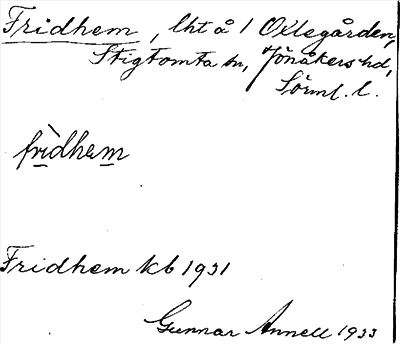 Fridhem, lht å 1 Oxlegården,
Stigtomta sn, Jönåkers hd,
Sörml. l.
fri̇̀dhem
Fridhem kb 1931
Gunnar Annell 1933